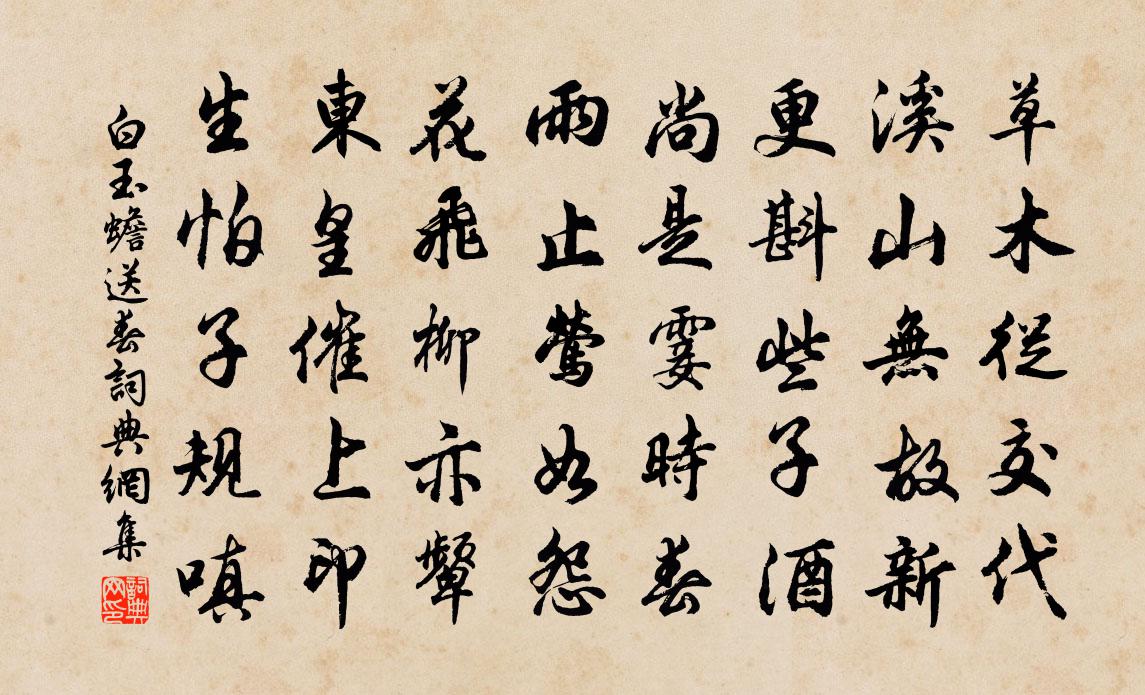 草木從交代
溪山無故新
更斟些子酒
尚是霎時春
雨止鶯如怨
花飛柳亦顰
東皇催上印
生怕子規嗔
白玉蟾送春詞典網集
詞典网印